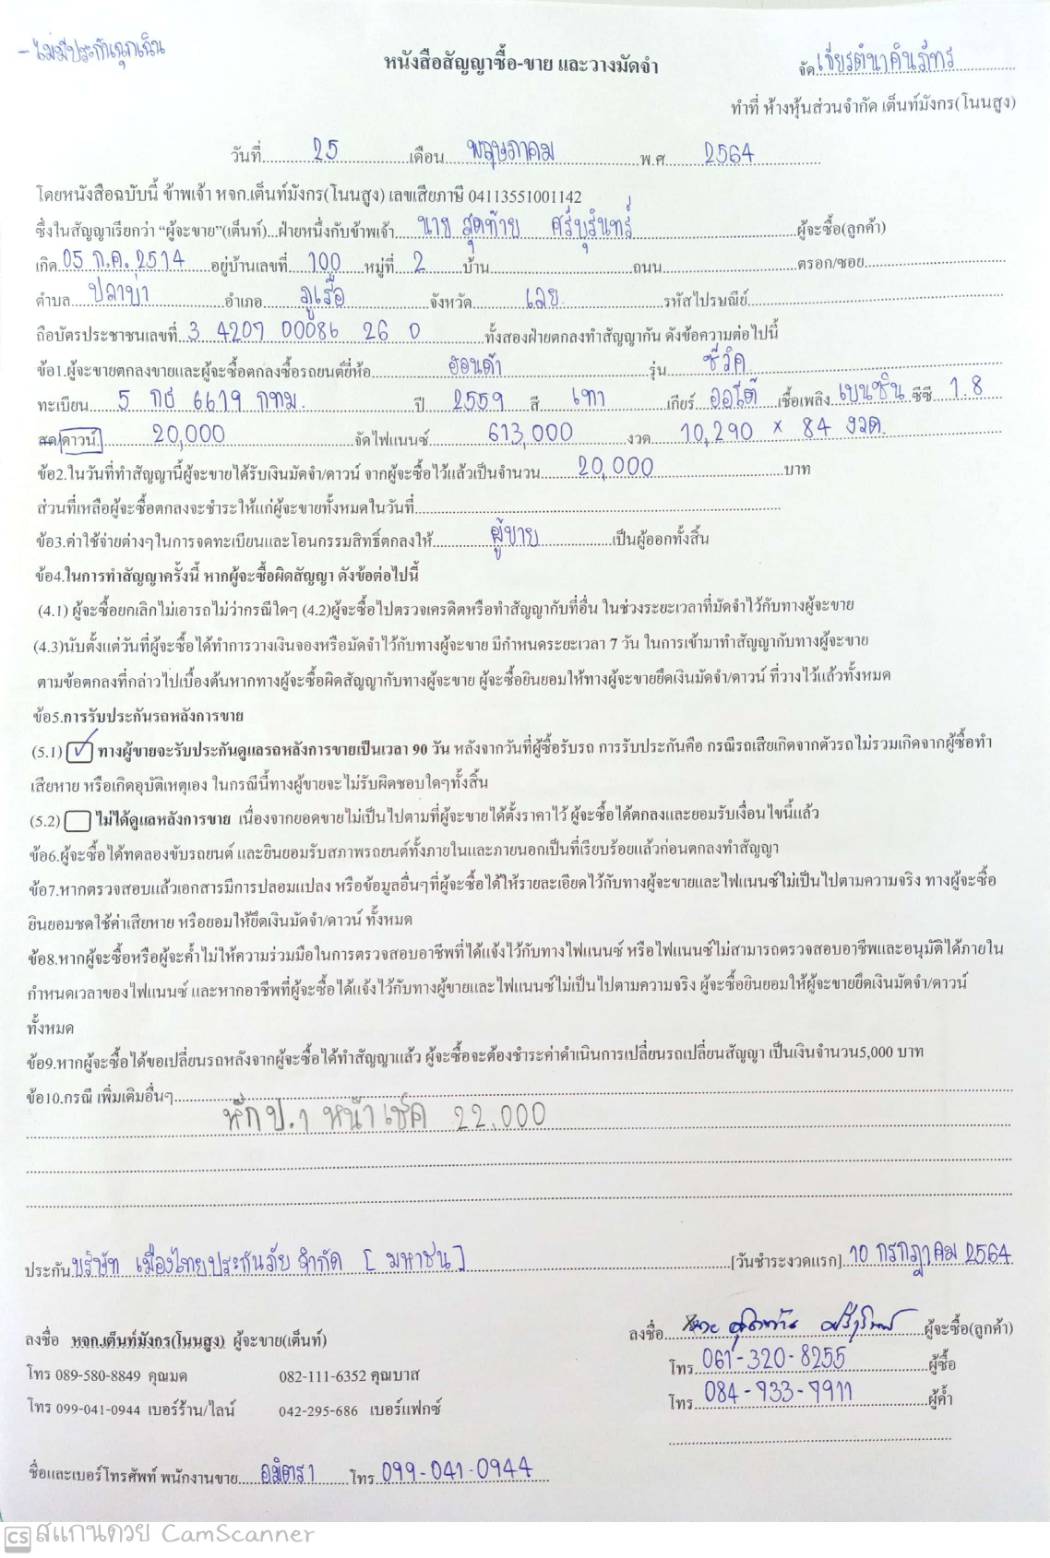 - ไม่มีประกันฉุกเฉิน
หนังสือสัญญาซื้อ-ขาย และวางมัดจำ
จัด เกียรตินาคินภัทร
ทำที่ ห้างหุ้นส่วนจำกัด เต็นท์มังกร(โนนสูง)
วันที่ 25 เดือน พฤษภาคม พ.ศ 2564
โดยหนังสือฉบับนี้ ข้าพเจ้า หจก.เต็นท์มังกร(โนนสูง) เลขเสียภาษี 04113551001142
ซึ่งในสัญญาเรียกว่า “ผู้จะขาย”(เต็นท์)...ฝ่ายหนึ่งกับข้าพเจ้า นาย สุดท้าย ศรีบุรินทร์ ผู้จะซื้อ(ลูกค้า)
เกิด 05 ก.ค. 2514 อยู่บ้านเลขที่ 100 หมู่ที่ 2 บ้าน ถนน ตรอก/ซอย
ตำบล ปลาบ่า อำเภอ ภูเรือ จังหวัด เลย รหัสไปรษณีย์
ถือบัตรประชาชนเลขที่ 3 4207 00086 26 0 ทั้งสองฝ่ายตกลงทำสัญญากัน ดังข้อความต่อไปนี้
ข้อ1.ผู้จะขายตกลงขายและผู้จะซื้อตกลงซื้อรถยนต์ยี่ห้อ ฮอนด้า รุ่น ซีวิค
ทะเบียน 5 กธ 6619 กทม. ปี 2559 สี เทา เกียร์ ออโต้ เชื้อเพลิง เบนซิน ซีซี 1.8
สด/ดาวน์ 20,000 จัดไฟแนนซ์ 613,000 งวด 10,290 x 84 งวด.
ข้อ2.ในวันที่ทำสัญญานี้ผู้จะขายได้รับเงินมัดจำ/ดาวน์ จากผู้จะซื้อไว้แล้วเป็นจำนวน 20,000 บาท
ส่วนที่เหลือผู้จะซื้อตกลงจะชำระให้แก่ผู้จะขายทั้งหมดในวันที่
ข้อ3.ค่าใช้จ่ายต่างๆในการจดทะเบียนและโอนกรรมสิทธิ์ตกลงให้ ผู้ขาย เป็นผู้ออกทั้งสิ้น
ข้อ4.ในการทำสัญญาครั้งนี้ หากผู้จะซื้อผิดสัญญา ดังข้อต่อไปนี้
(4.1) ผู้จะซื้อยกเลิกไม่เอารถไม่ว่ากรณีใดๆ (4.2)ผู้จะซื้อไปตรวจเครดิตหรือทำสัญญากับที่อื่น ในช่วงระยะเวลาที่มัดจำไว้กับทางผู้จะขาย
(4.3)นับตั้งแต่วันที่ผู้จะซื้อได้ทำการวางเงินจองหรือมัดจำไว้กับทางผู้จะขาย มีกำหนดระยะเวลา 7 วัน ในการเข้ามาทำสัญญากับทางผู้จะขาย
ตามข้อตกลงที่กล่าวไปเบื้องต้นหากทางผู้จะซื้อผิดสัญญากับทางผู้จะขาย ผู้จะซื้อยินยอมให้ทางผู้จะขายยึดเงินมัดจำ/ดาวน์ ที่วางไว้แล้วทั้งหมด
ข้อ5.การรับประกันรถหลังการขาย
(5.1) ✓ ทางผู้ขายจะรับประกันดูแลรถหลังการขายเป็นเวลา 90 วัน หลังจากวันที่ผู้ซื้อรับรถ การรับประกันคือ กรณีรถเสียเกิดจากตัวรถไม่รวมเกิดจากผู้ซื้อทำ
เสียหาย หรือเกิดอุบัติเหตุเอง ในกรณีนี้ทางผู้ขายจะไม่รับผิดชอบใดๆทั้งสิ้น
(5.2) ไม่ได้ดูแลหลังการขาย เนื่องจากยอดขายไม่เป็นไปตามที่ผู้จะขายได้ตั้งราคาไว้ ผู้จะซื้อได้ตกลงและยอมรับเงื่อนไขนี้แล้ว
ข้อ6.ผู้จะซื้อได้ทดลองขับรถยนต์ และยินยอมรับสภาพรถยนต์ทั้งภายในและภายนอกเป็นที่เรียบร้อยแล้วก่อนตกลงทำสัญญา
ข้อ7.หากตรวจสอบแล้วเอกสารมีการปลอมแปลง หรือข้อมูลอื่นๆที่ผู้จะซื้อได้ให้รายละเอียดไว้กับทางผู้จะขายและไฟแนนซ์ไม่เป็นไปตามความจริง ทางผู้จะซื้อ
ยินยอมชดใช้ค่าเสียหาย หรือยอมให้ยึดเงินมัดจำ/ดาวน์ ทั้งหมด
ข้อ8.หากผู้จะซื้อหรือผู้จะค้ำไม่ให้ความร่วมมือในการตรวจสอบอาชีพที่ได้แจ้งไว้กับทางไฟแนนซ์ หรือไฟแนนซ์ไม่สามารถตรวจสอบอาชีพและอนุมัติได้ภายใน
กำหนดเวลาของไฟแนนซ์ และหากอาชีพที่ผู้จะซื้อได้แจ้งไว้กับทางผู้ขายและไฟแนนซ์ไม่เป็นไปตามความจริง ผู้จะซื้อยินยอมให้ผู้จะขายยึดเงินมัดจำ/ดาวน์
ทั้งหมด
ข้อ9.หากผู้จะซื้อได้ขอเปลี่ยนรถหลังจากผู้จะซื้อได้ทำสัญญาแล้ว ผู้จะซื้อจะต้องชำระค่าดำเนินการเปลี่ยนรถเปลี่ยนสัญญา เป็นเงินจำนวน5,000 บาท
ข้อ10.กรณี เพิ่มเติมอื่นๆ
หัก ป.1 หน้าเช็ค 22,000
ประกัน บริษัท เมืองไทยประกันภัย จำกัด [ มหาชน ] [วันชำระงวดแรก] 10 กรกฎาคม 2564
ลงชื่อ หจก.เต็นท์มังกร(โนนสูง) ผู้จะขาย(เต็นท์)
ลงชื่อ นาย สุดท้าย ศรีบุรินทร์ ผู้จะซื้อ(ลูกค้า)
โทร 089-580-8849 คุณมด 082-111-6352 คุณบาส
โทร 061-320-8255 ผู้ซื้อ
โทร 099-041-0944 เบอร์ร้าน/ไลน์ 042-295-686 เบอร์แฟกซ์
โทร 084-933-9911 ผู้ค้ำ
ชื่อและเบอร์โทรศัพท์ พนักงานขาย อมิตรา โทร 099-041-0944
CS สแกนด้วย CamScanner